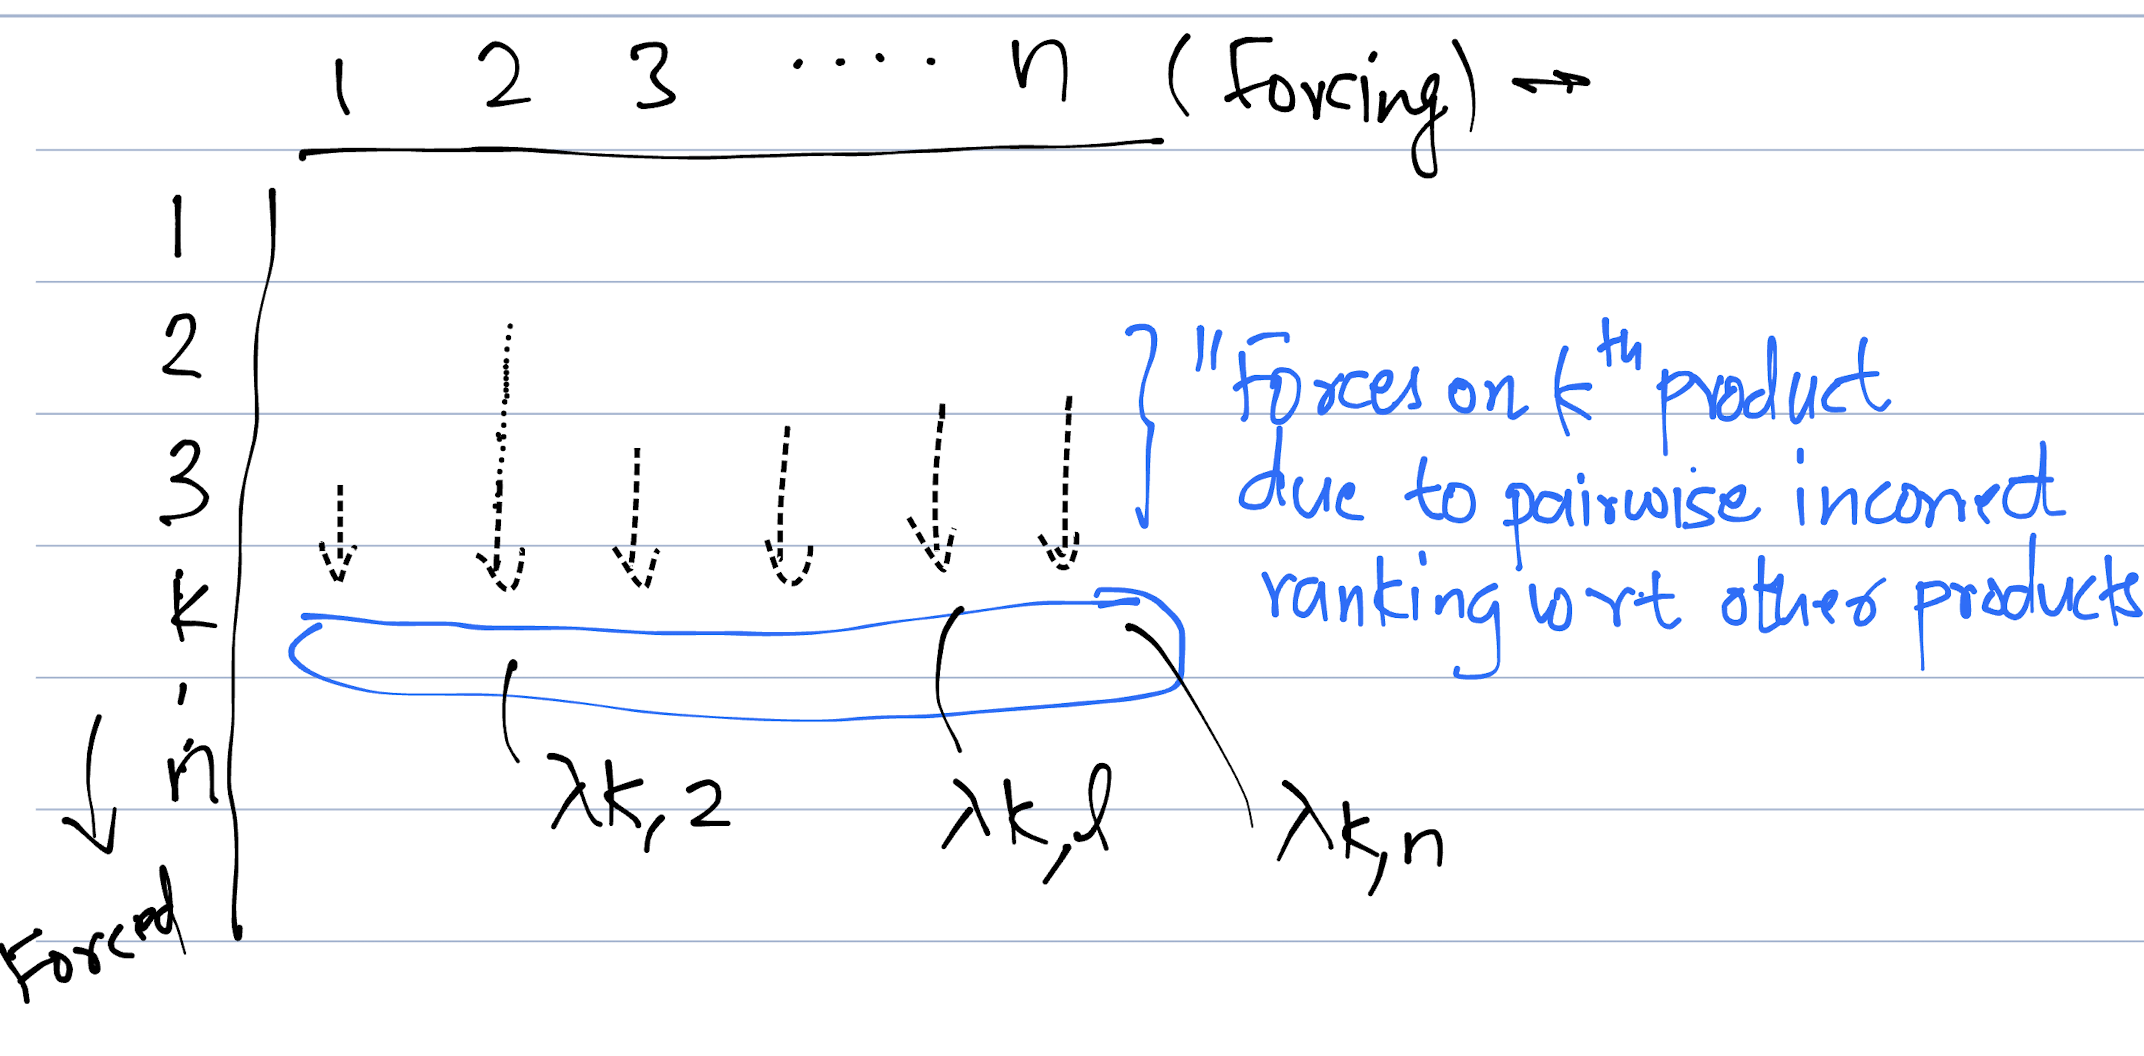 1 2 3 .... n (Forcing) →
1
2
3
k
n
Forced
"Forces on kth product
due to pairwise incorrect
ranking wrt other products
λk,2 λk,l λk,n